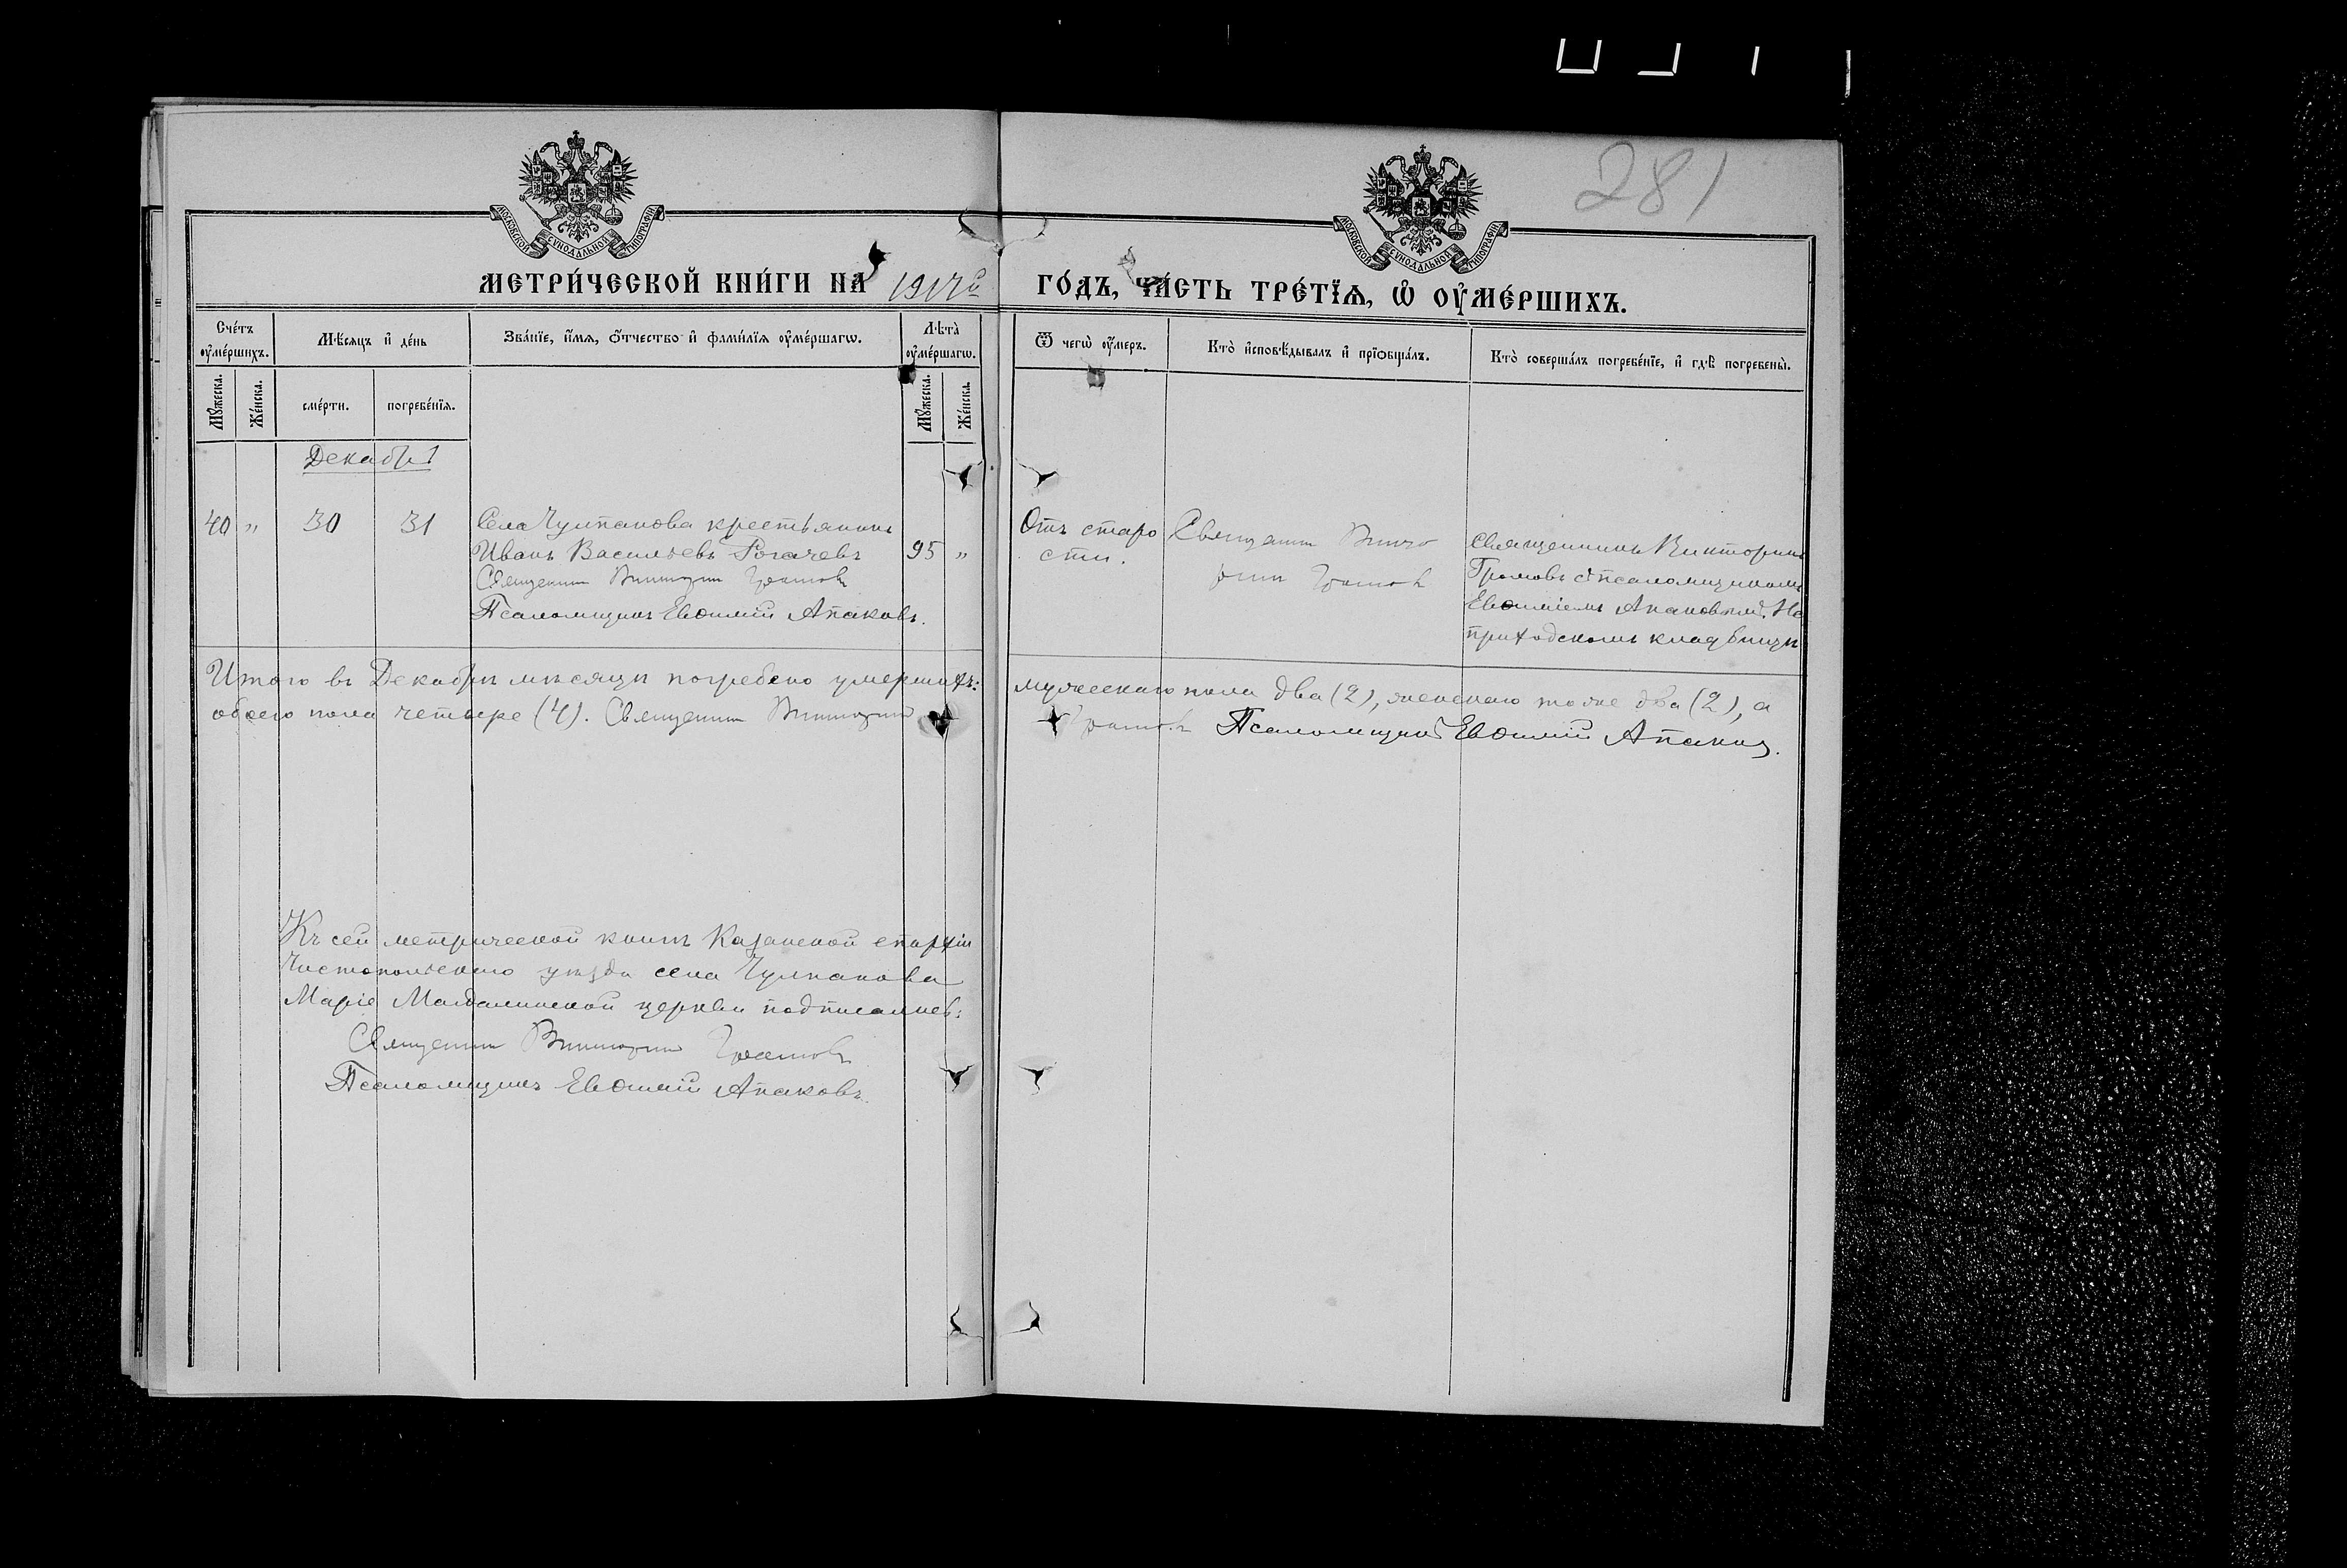 281
МОСКОВСКОЙ СѴНОДАЛЬНОЙ ТИПОГРАФІИ
МОСКОВСКОЙ СѴНОДАЛЬНОЙ ТИПОГРАФІИ
МЕТРИ́ЧЕСКОЙ КНИ́ГИ НА 1917й ГО́ДЪ, ЧА́СТЬ ТРЕ́ТЇѦ, Ѡ҆ ОУ҆МЕ́РШИХЪ.
Сче́тъ оу҆ме́ршихъ.
Мѣ́сяцъ и҆ де́нь
Зва́нїе, и҆́мѧ, ѻ҆́тчество и҆ фами́лїѧ оу҆ме́ршагѡ.
Лѣ̀та оу҆ме́ршагѡ.
Ѿ чегѡ̀ оу҆́меръ.
Кто̀ и҆сповѣ́дывалъ и҆ прїѻбща́лъ.
Кто̀ соверша́лъ погребе́нїе, и҆ гдѣ̀ погребены̀.
Мꙋ́жеска. Же́нска. сме́рти. погребе́нїѧ. Мꙋ́жеска. Же́нска.
Декабрь
40 " 30 31 Села Чулпанова крестьянинъ
Иванъ Васильевъ Рогачевъ 95 "
Священникъ Викторинъ Громовъ
Псаломщикъ Евѳимій Апаковъ.
Отъ старо
сти.
Священникъ Викто
ринъ Громовъ
Священникъ Викторинъ
Громовъ съ псаломщикомъ
Евѳиміемъ Апаковымъ. На
приходскомъ кладбищѣ
Итого въ Декабрѣ мѣсяцѣ погребено умершихъ: мужескаго пола два (2), женскаго тоже два (2), а
обоего пола четыре (4). Священникъ Викторинъ Громовъ Псаломщикъ Евѳимій Апаковъ.
Къ сей метрической книгѣ Казанской епархіи
Чистопольскаго уѣзда села Чулпанова
Маріе Магдалинской церкви подписались:
Священникъ Викторинъ Громовъ
Псаломщикъ Евѳимій Апаковъ.